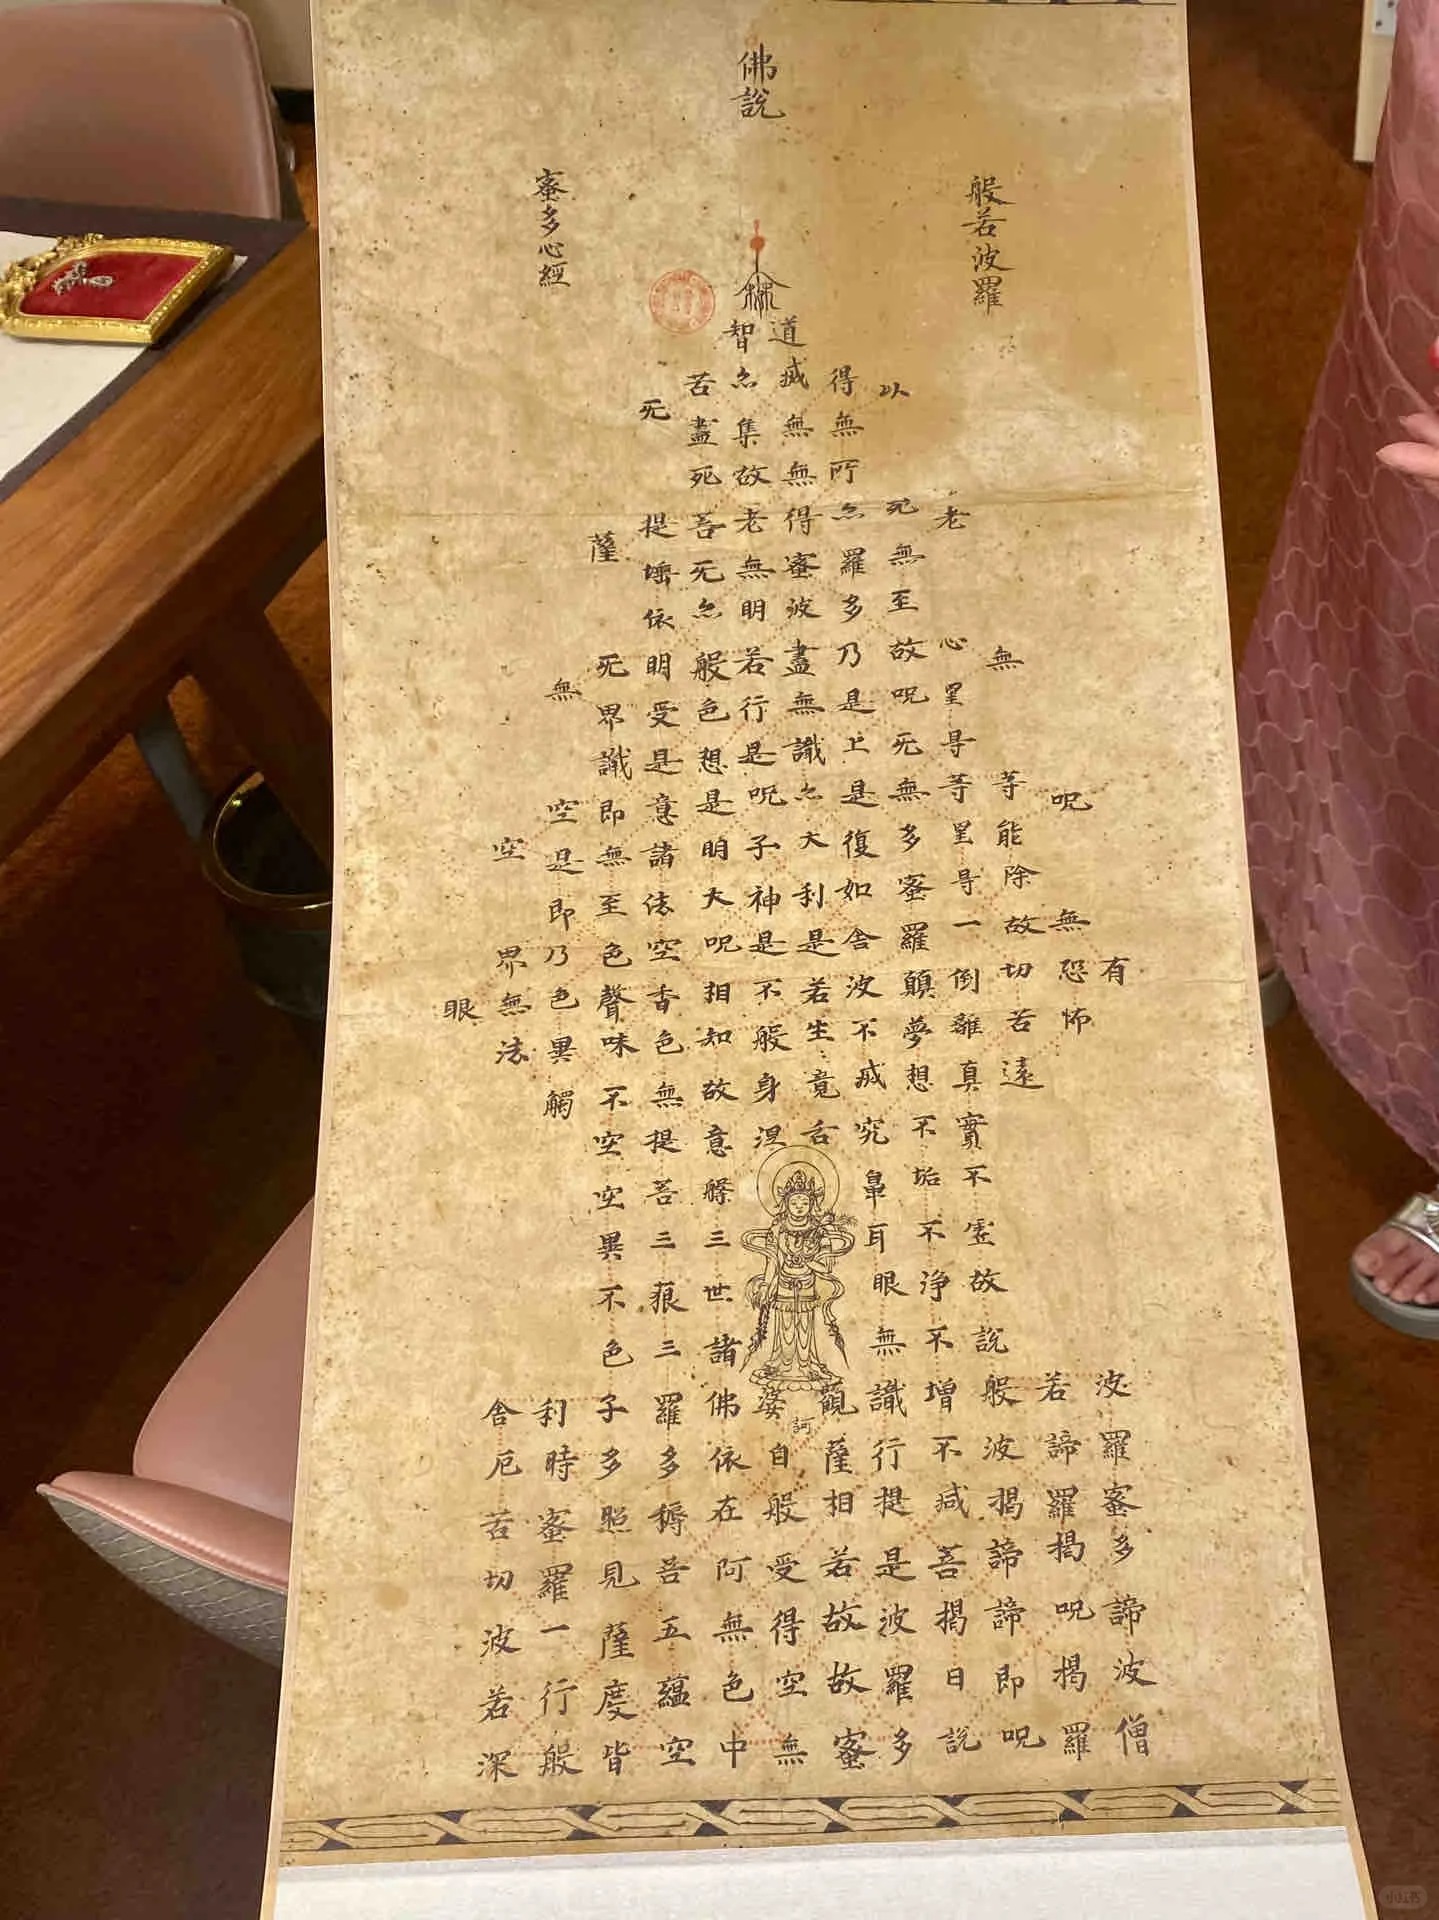 佛說
般若波羅
蜜多心經
有
呪無恐怖波羅蜜多諦波僧
無等能除故切苦遠若諦羅揭呪揭羅
老心罣㝵等罣㝵一倒離真實不虛故說般波揭諦諦即呪
以死無至故呪无無多蜜羅顛夢想不垢不淨不增不減菩揭日說
得無所亦羅多乃是上是復如舍波不滅究鼻耳眼無識行提是波羅多
道滅無無得蜜波盡無識亦大利是若生竟舌觀薩相若故故蜜
訶
智亦集故老無明若行是呪子神是不般身涅婆自般受得空無
苦盡死菩无亦般色想是明大呪相知故意解三世諸佛依在阿無色中
无提埵依明受是意諸法空香色無提菩三藐三羅多耨菩五蘊空
薩无界識即無至色聲味不空空異不色子多照見薩度皆
無空是即乃色異觸利時蜜羅一行般
空界無法舍厄苦切波若深
眼